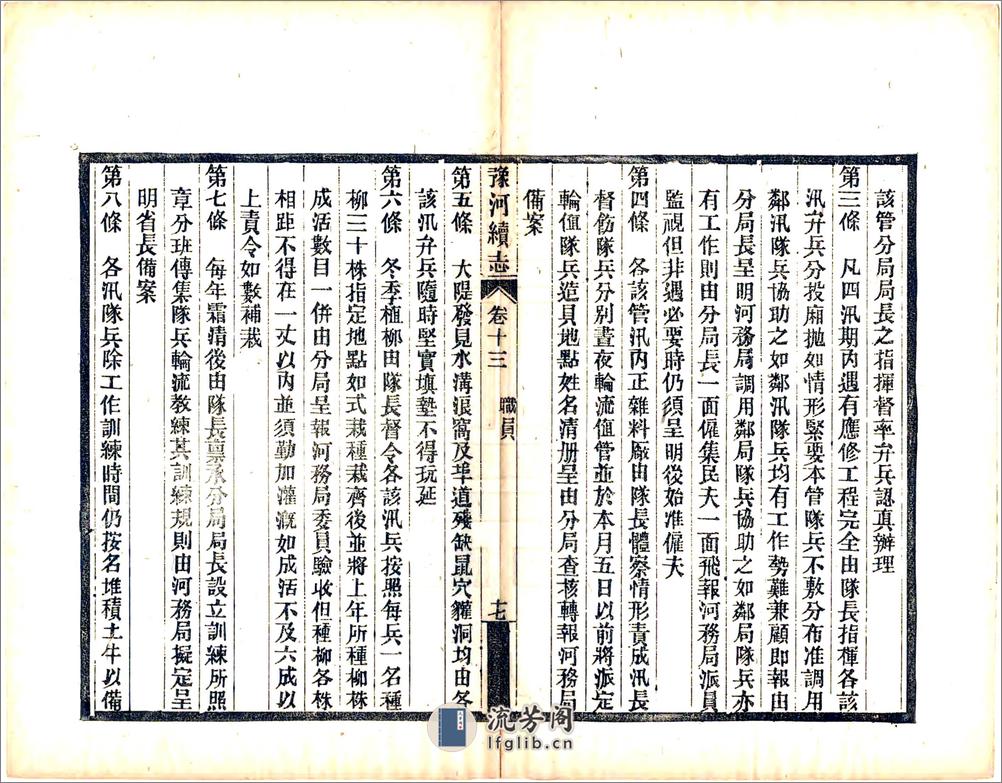 該管分局局長之指揮督率弁兵認眞辦理
第三條　凡四汛期內遇有應修工程完全由隊長指揮各該
汛弁兵分投廂拋如情形緊要本管隊兵不敷分布准調用
鄰汛隊兵協助之如鄰汛隊兵均有工作勢難兼顧即報由
分局長呈明河務局調用鄰局隊兵協助之如鄰局隊兵亦
有工作則由分局長一面僱集民夫一面飛報河務局派員
監視但非遇必要時仍須呈明後始准僱夫
第四條　各該管汛內正雜料厰由隊長體察情形責成汛長
督飭隊兵分別晝夜輪流値管並於本月五日以前將派定
輪値隊兵造具地點姓名清册呈由分局查核轉報河務局
備案
豫河續志　卷十三　職員　十七
第五條　大隄發見水溝浪窩及埠道殘缺鼠穴獾洞均由各
該汛弁兵隨時堅實塡墊不得玩延
第六條　冬季植柳由隊長督令各該汛兵按照每兵一名種
柳三十株指定地點如式栽種栽齊後並將上年所種柳株
成活數目一併由分局呈報河務局委員驗收但種柳各株
相距不得在一丈以內並須勤加灌漑如成活不及六成以
上責令如數補栽
第七條　每年霜清後由隊長禀承分局局長設立訓練所照
章分班傳集隊兵輪流教練其訓練規則由河務局擬定呈
明省長備案
第八條　各汛隊兵除工作訓練時間仍按名堆積土牛以備
流芳阁
lfglib.cn